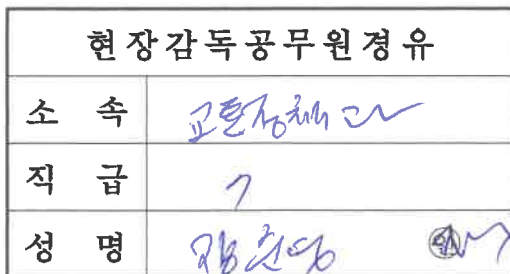 현장감독공무원경유
소 속 교통정책과
직 급 7
성 명